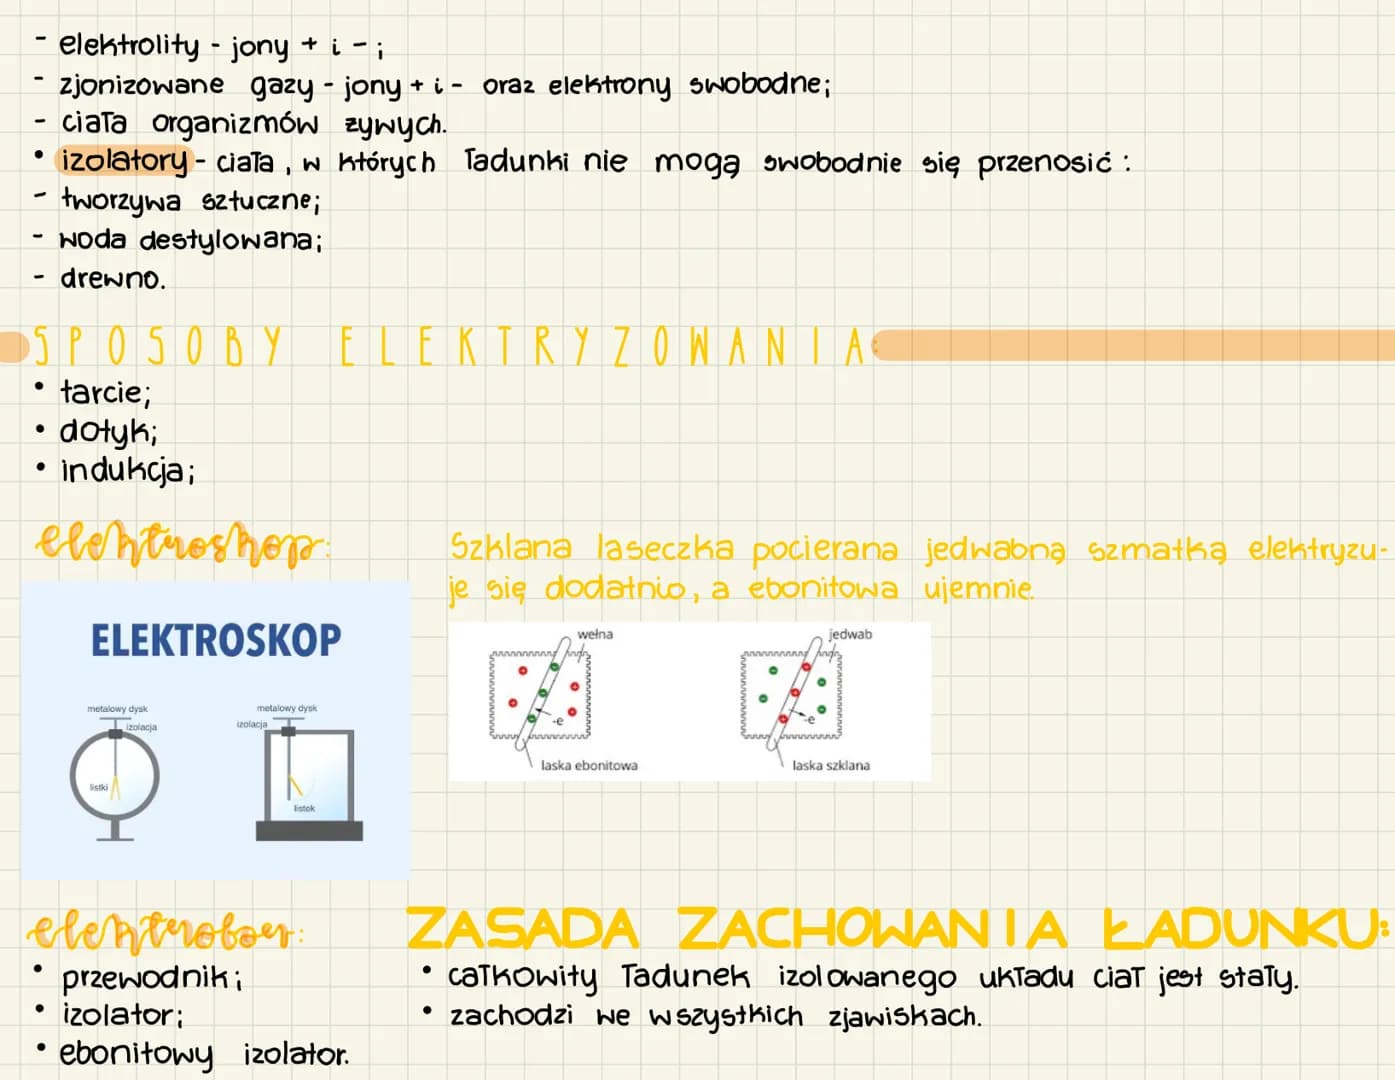 - elektrolity - jony + i - ;
- zjonizowane gazy - jony + i - oraz elektrony swobodne;
- ciała organizmów żywych.
• izolatory - ciała, w których ładunki nie mogą swobodnie się przenosić :
- tworzywa sztuczne;
- woda destylowana;
- drewno.
SPOSOBY ELEKTRYZOWANIA:
• tarcie;
• dotyk;
• indukcja;
elektroskop:
ELEKTROSKOP
metalowy dysk
izolacja
listki
metalowy dysk
izolacja
listek
Szklana laseczka pocierana jedwabną szmatką elektryzu-
je się dodatnio, a ebonitowa ujemnie.
wełna
-e
laska ebonitowa
jedwab
-e
laska szklana
elektrofor:
• przewodnik;
• izolator;
• ebonitowy izolator.
ZASADA ZACHOWANIA ŁADUNKU:
• całkowity ładunek izolowanego układu ciał jest stały.
• zachodzi we wszystkich zjawiskach.